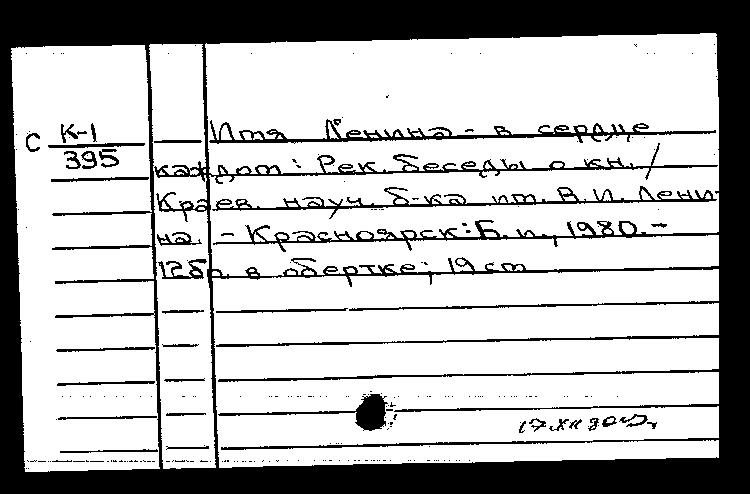 С К-1
395
Имя Ленина - в сердце
каждом: Рек. беседы о кн. /
Краев. науч. б-ка им. В.И. Лени-
на. - Красноярск: Б. и., 1980. -
12бр. в обертке; 19 см